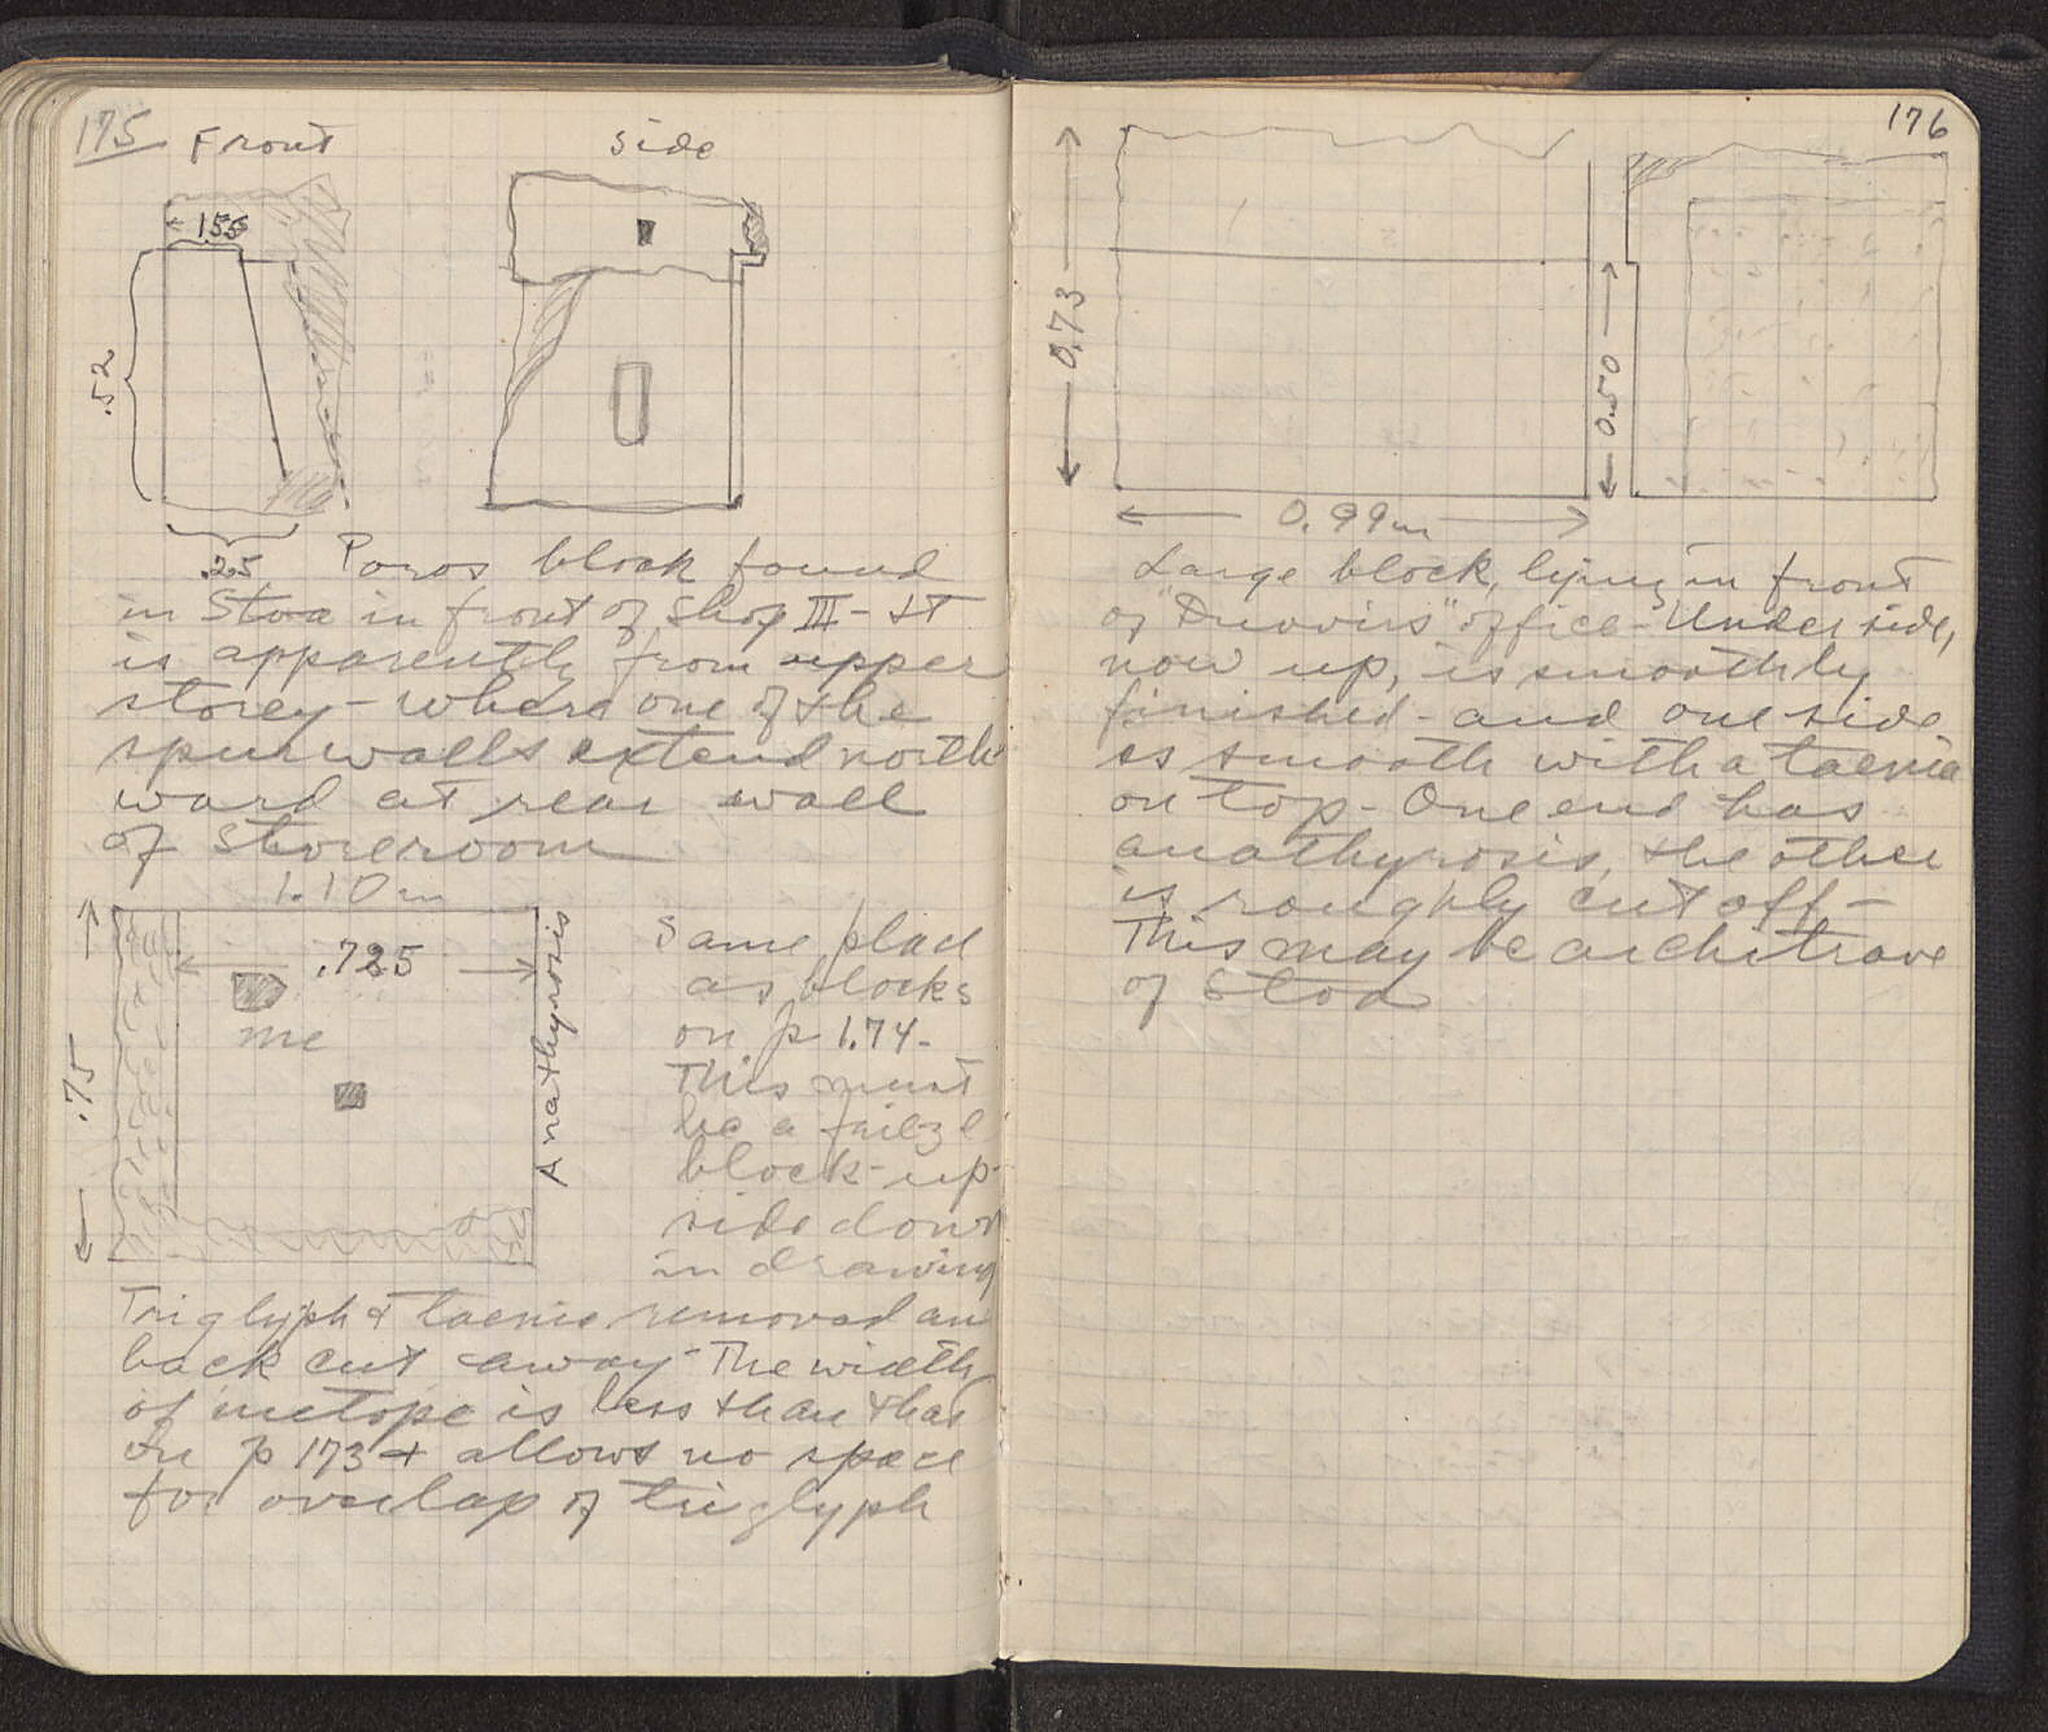 175
Front
side
155
.52
.25
Poros block found
in Stoa in front of Shop III - It
is apparently from upper
storey - where one of the
spur walls extend north
ward at rear wall
of Storeroom
1.10 m
.725
.75
me
Anathyrosis
Same place
as blocks
on p 174 -
This must
be a frieze
block - up
side down
in drawing
Triglyph & taenia removed an
back cut away - The width
of metope is less than that
on p 173 + allows no space
for overlap of triglyph
176
0.73
0.50
0.99m
Large block, lying in front
of "Duovirs" office - Under side,
now up, is smoothly
finished - and one side
is smooth with a taenia
on top - One end has
anathyrosis, the other
is roughly cut off -
This may be architrave
of Stoa